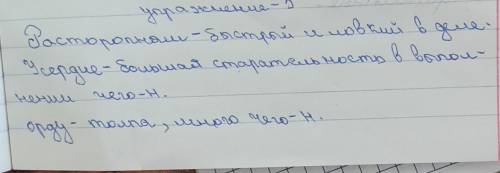 упражнение-
Расторопным-быстрый и ловкий в деле.
Усердие-большая старательность в выпол-
нении чего-н.
орду-толпа, много чего-н.